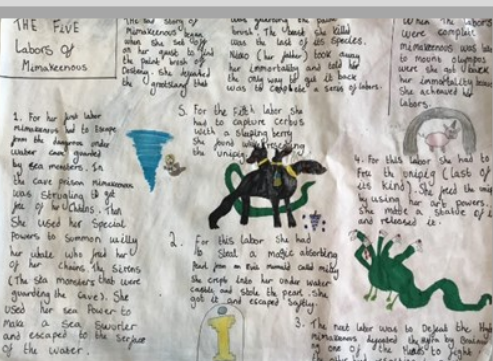 THE FIVE
Labors of
Mimakeenous
The sad story of
Mimakeenous began
when she set off
on her quest to find
the paint brush of
Destany. She
the
was guarding the paint
brush. The beast she killed
was the last of its species.
(her father) took away
her immortality and told her
the only way to get it back
was to complete a series of labors.
When the labors
were complete
mimakeenous was
to mount olympos
were she got back
her immortality because
She acheved
Labors.
1. For her first labor
mimakeenous had to Escape
from the dangerous under
water cave guarded
by sea monsters. In
the cave prison mimakeenous
was strugling to get
free of her Chains. Then
She used her special
Powers to Summon willy
her whale who freed her
of her chains. The Sirens
(The sea monsters that were
guarding the cave). She
used her sea Power to
make a Sea swirler
and escaped to the Serface
of the water.
5. For the Fifth labor she
had to capture cerbus
with a sleeping berry
She found
the unipig
2. For this labor she had
to steal a magic absorbing
Pearl from an Evil mermaid called
She crept into her under water
castle and stole the pearl. She
got it and escaped safely.
4. For this labour she had to
free the unipig (last of
its kind). She freed the unipig
by using her art powers.
She made a statue of it
and released it.
3. The next labor was to Defeat the Hydra
mimakeenous defeated the Hydra by
as one of the Heads to fight